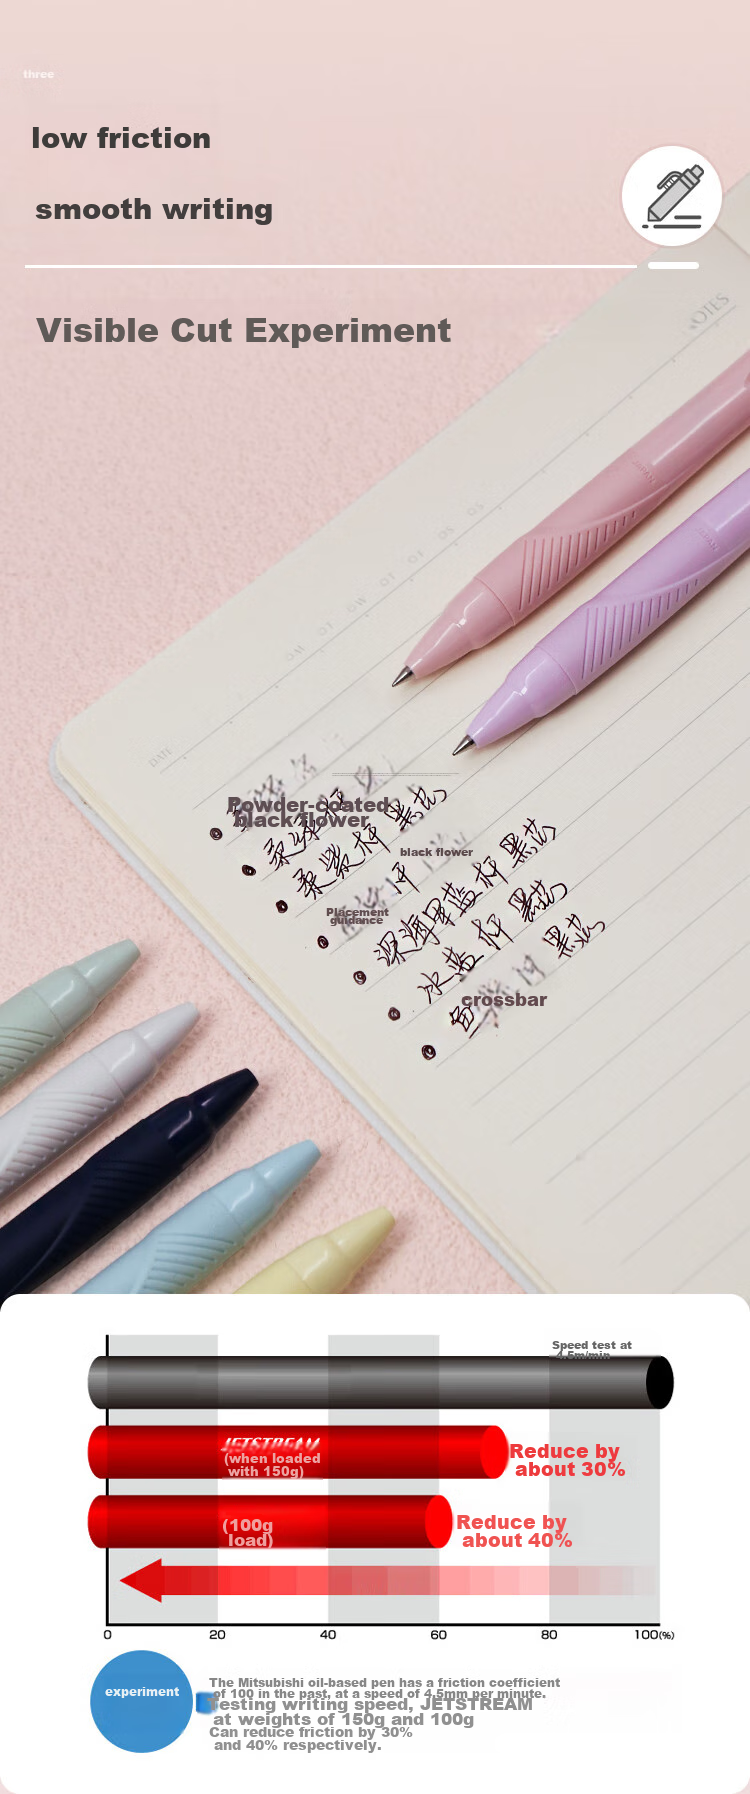 three
low friction
smooth writing
Visible Cut Experiment
NOTES
DATE
Powder-coated
black flower
黑芯
black flower
柔紫杆 黑芯
Placement
guidance
深海军蓝杆 黑芯
冰蓝杆 黑芯
黑芯
crossbar
Speed test at
4.5m/min
JETSTREAM
(when loaded
with 150g)
Reduce by
about 30%
(100g
load)
Reduce by
about 40%
0 20 40 60 80 100(%)
experiment
The Mitsubishi oil-based pen has a friction coefficient
of 100 in the past, at a speed of 4.5mm per minute.
Testing writing speed, JETSTREAM
at weights of 150g and 100g
Can reduce friction by 30%
and 40% respectively.